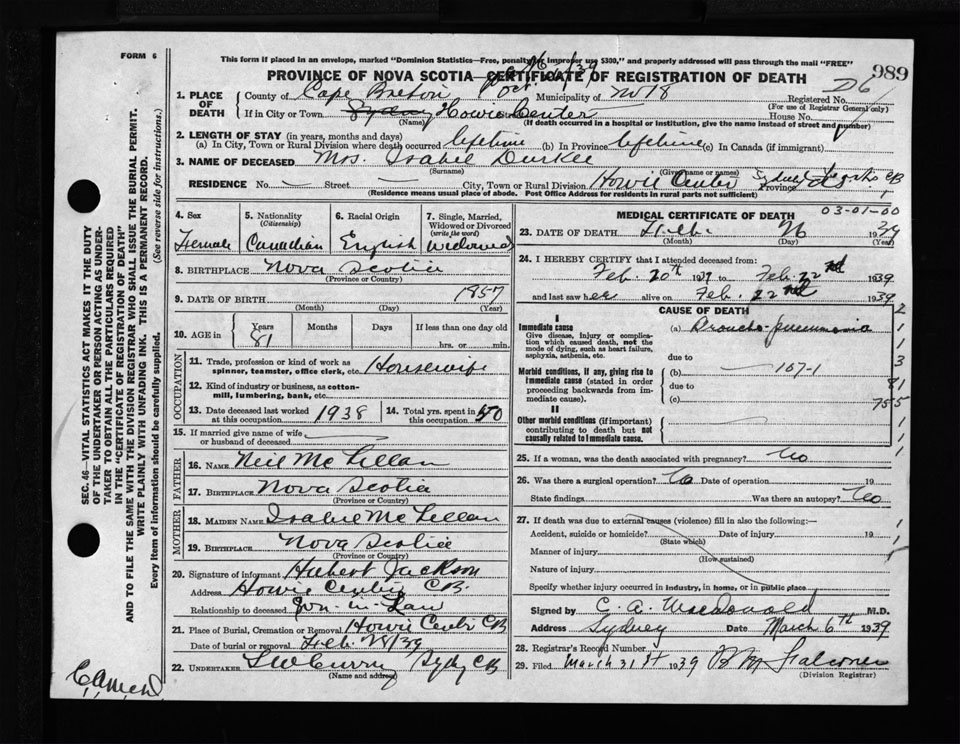 FORM 6
This form if placed in an envelope, marked "Dominion Statistics—Free, penalty for improper use $300," and properly addressed will pass through the mail "FREE"
PROVINCE OF NOVA SCOTIA—CERTIFICATE OF REGISTRATION OF DEATH
989
1. PLACE OF DEATH
County of Cape Breton Municipality of No 18 Registered No.
(For use of Registrar General only)
If in City or Town Sydney Howie Center House No.
(Name) (If death occurred in a hospital or institution, give the name instead of street and number)
2. LENGTH OF STAY (in years, months and days)
(a) In City, Town or Rural Division where death occurred lifetime (b) In Province lifetime (c) In Canada (if immigrant)
3. NAME OF DECEASED Mrs. Isabel Durkee
(Surname) (Given name or names)
RESIDENCE No. Street City, Town or Rural Division Howie Center Province
(Residence means usual place of abode. Post Office Address for residents in rural parts not sufficient)
4. Sex
Female
5. Nationality
(Citizenship)
Canadian
6. Racial Origin
English
7. Single, Married, Widowed or Divorced
(write the word)
Widowed
8. BIRTHPLACE Nova Scotia
(Province or Country)
9. DATE OF BIRTH 1857
(Month) (Day) (Year)
10. AGE in Years Months Days If less than one day old
81 hrs. or min.
OCCUPATION
11. Trade, profession or kind of work as spinner, teamster, office clerk, etc. Housewife
12. Kind of industry or business, as cotton-mill, lumbering, bank, etc.
13. Date deceased last worked at this occupation 1938
14. Total yrs. spent in this occupation 40
15. If married give name of wife or husband of deceased
FATHER
16. NAME Neil McLellan
17. BIRTHPLACE Nova Scotia
(Province or Country)
MOTHER
18. MAIDEN NAME Isabel McLellan
19. BIRTHPLACE Nova Scotia
(Province or Country)
20. Signature of informant Hubert Jackson
Address Howie Center CB.
Relationship to deceased Son-in-Law
21. Place of Burial, Cremation or Removal Howie Center CB
Date of burial or removal Feb. 28/39
22. UNDERTAKER Curry Sydney CB
(Name and address)
MEDICAL CERTIFICATE OF DEATH
03-01-00
23. DATE OF DEATH Feb. 26 1939
(Month) (Day) (Year)
24. I HEREBY CERTIFY that I attended deceased from:
Feb. 20th 1939 to Feb. 22nd 1939
and last saw her alive on Feb. 22nd 1939
CAUSE OF DEATH
I
Immediate cause
Give disease, injury or complication which caused death, not the mode of dying, such as heart failure, asphyxia, asthenia, etc.
(a) Broncho-pneumonia
due to
Morbid conditions, if any, giving rise to immediate cause (stated in order proceeding backwards from immediate cause).
(b) 107-1
due to
(c)
II
Other morbid conditions (if important) contributing to death but not causally related to immediate cause.
25. If a woman, was the death associated with pregnancy? No
26. Was there a surgical operation? No Date of operation 19
State findings Was there an autopsy? No
27. If death was due to external causes (violence) fill in also the following:—
Accident, suicide or homicide? Date of injury 19
(State which)
Manner of injury
(How sustained)
Nature of injury
Specify whether injury occurred in industry, in home, or in public place
Signed by C. A. Macdonald M.D.
Address Sydney Date March 6th 1939
28. Registrar's Record Number
29. Filed March 31st 1939 Falconer
(Division Registrar)
SEC. 46—VITAL STATISTICS ACT MAKES IT THE DUTY
OF THE UNDERTAKER OR PERSON ACTING AS UNDER-
TAKER TO OBTAIN ALL THE PARTICULARS REQUIRED
IN THE "CERTIFICATE OF REGISTRATION OF DEATH"
AND TO FILE THE SAME WITH THE DIVISION REGISTRAR WHO SHALL ISSUE THE BURIAL PERMIT.
WRITE PLAINLY WITH UNFADING INK. THIS IS A PERMANENT RECORD.
Every item of information should be carefully supplied. (See reverse side for instructions.)